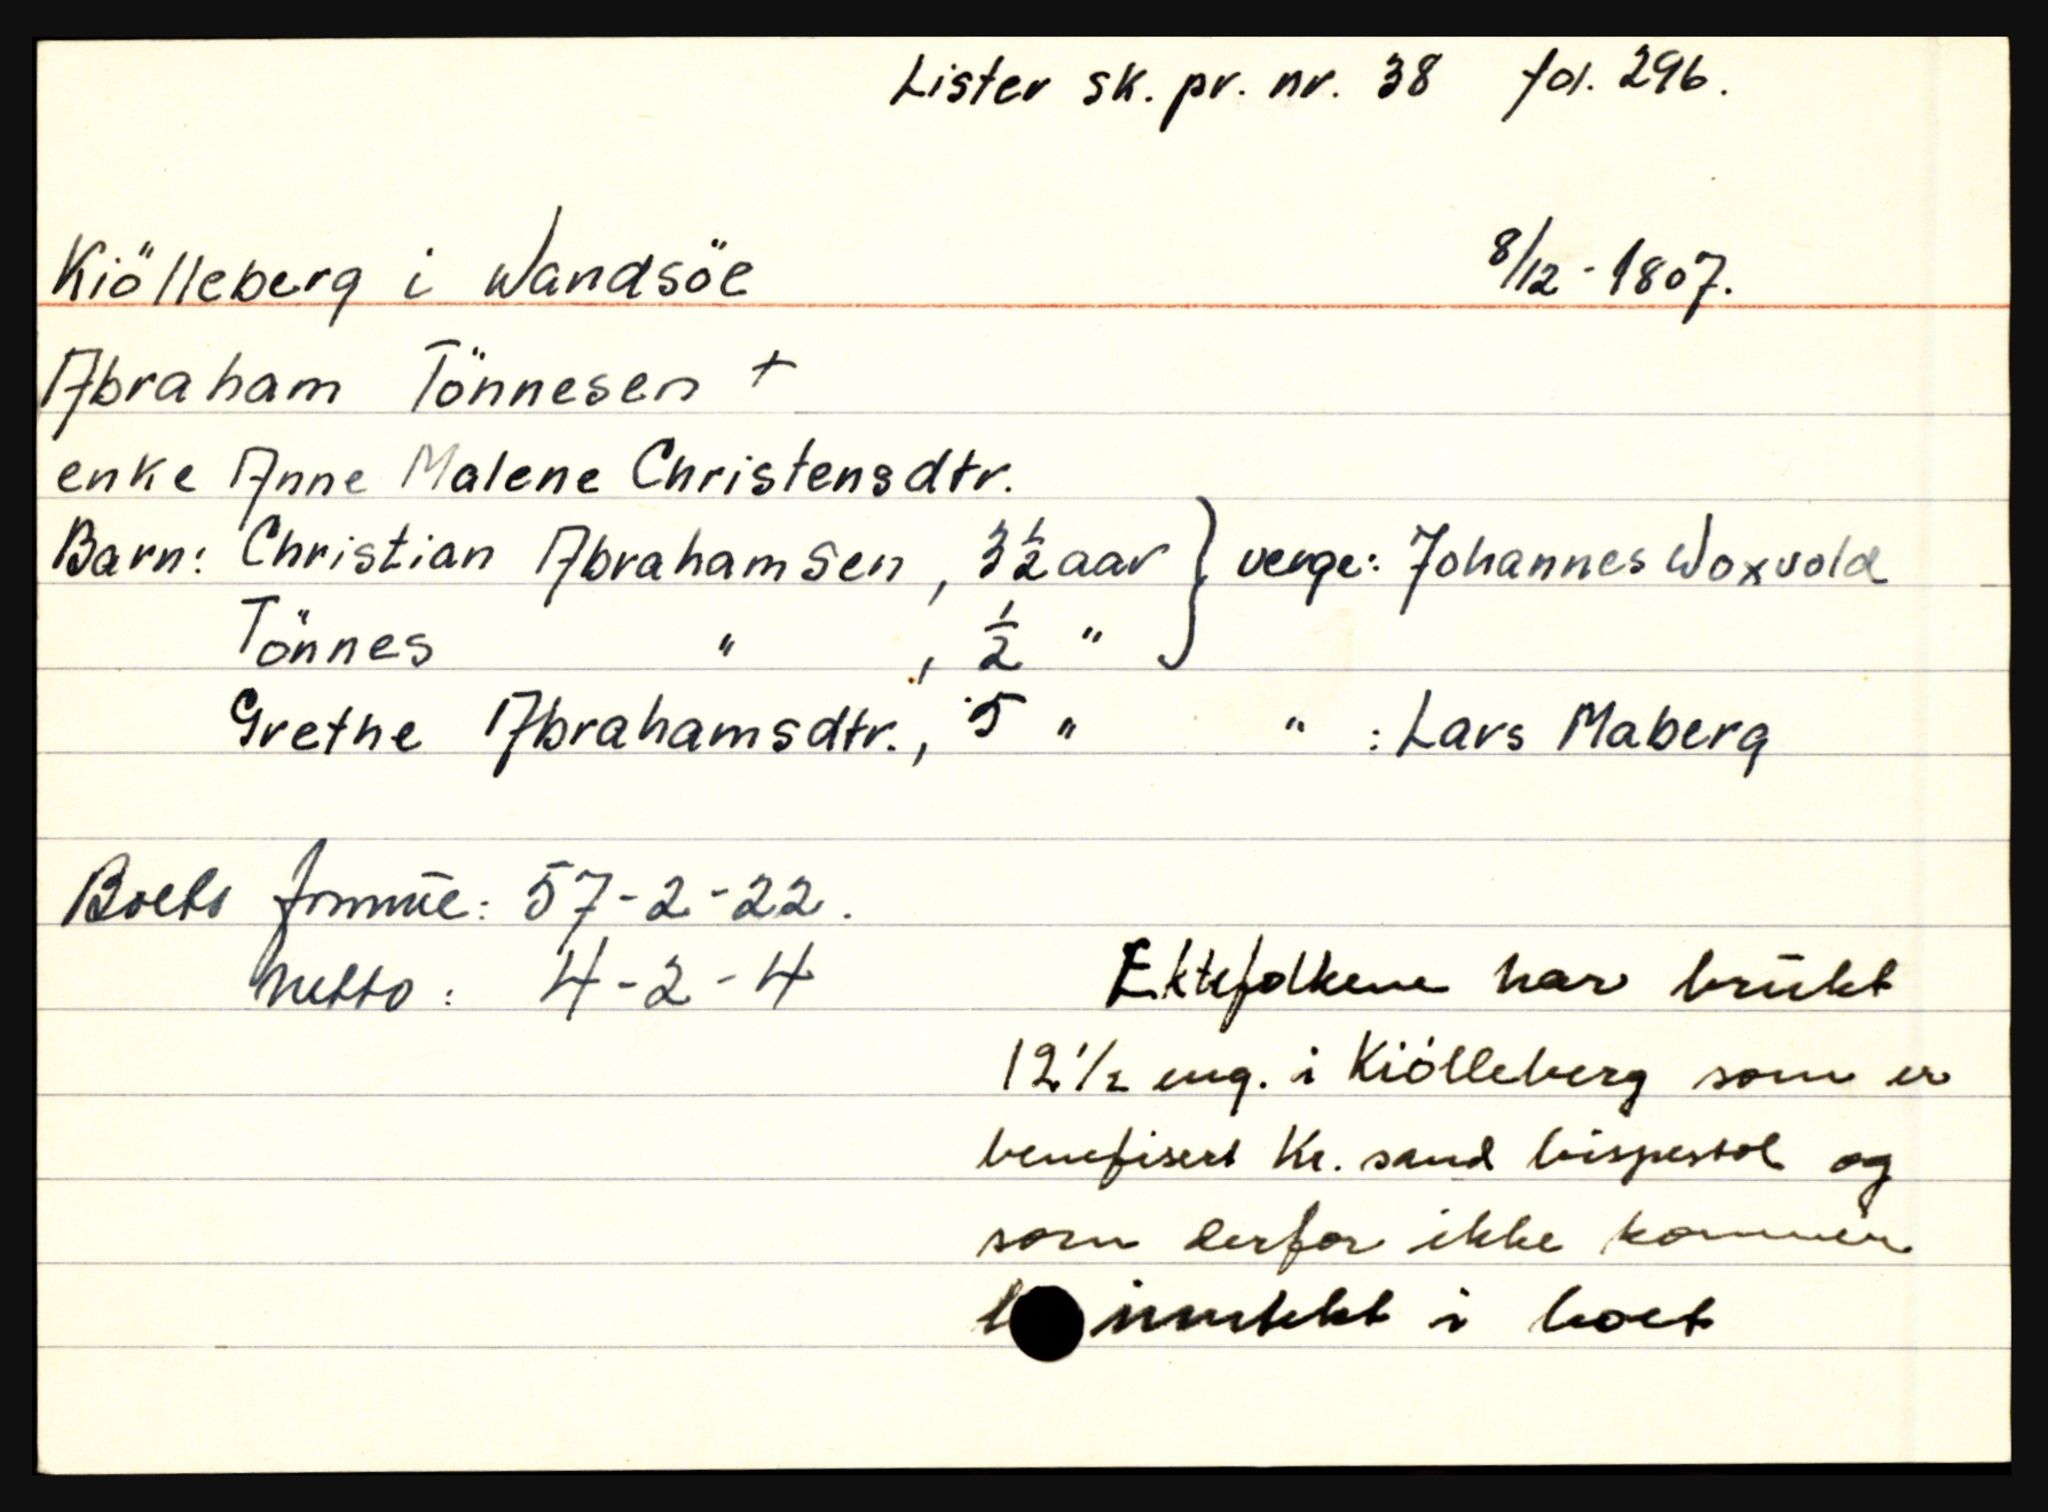 Lister sk. pr. nr. 38 fol. 296.
Kiölleberg i Wandsöe 8/12 - 1807.
Abraham Tönnesen +
enke Anne Malene Christensdtr.
Barn: Christian Abrahamsen, 3 1/2 aar } verge: Johannes Woxvold
Tönnes " , 1/2 "
Grethe Abrahamsdtr., 5 " " : Lars Maberg
Boets formue: 57-2-22.
Netto: 4-2-4
Ektefolkene har brukt
12 1/2 eng. i Kiölleberg som er
benefisert Kr. sand bispestol og
som derfor ikke kommer
i boet